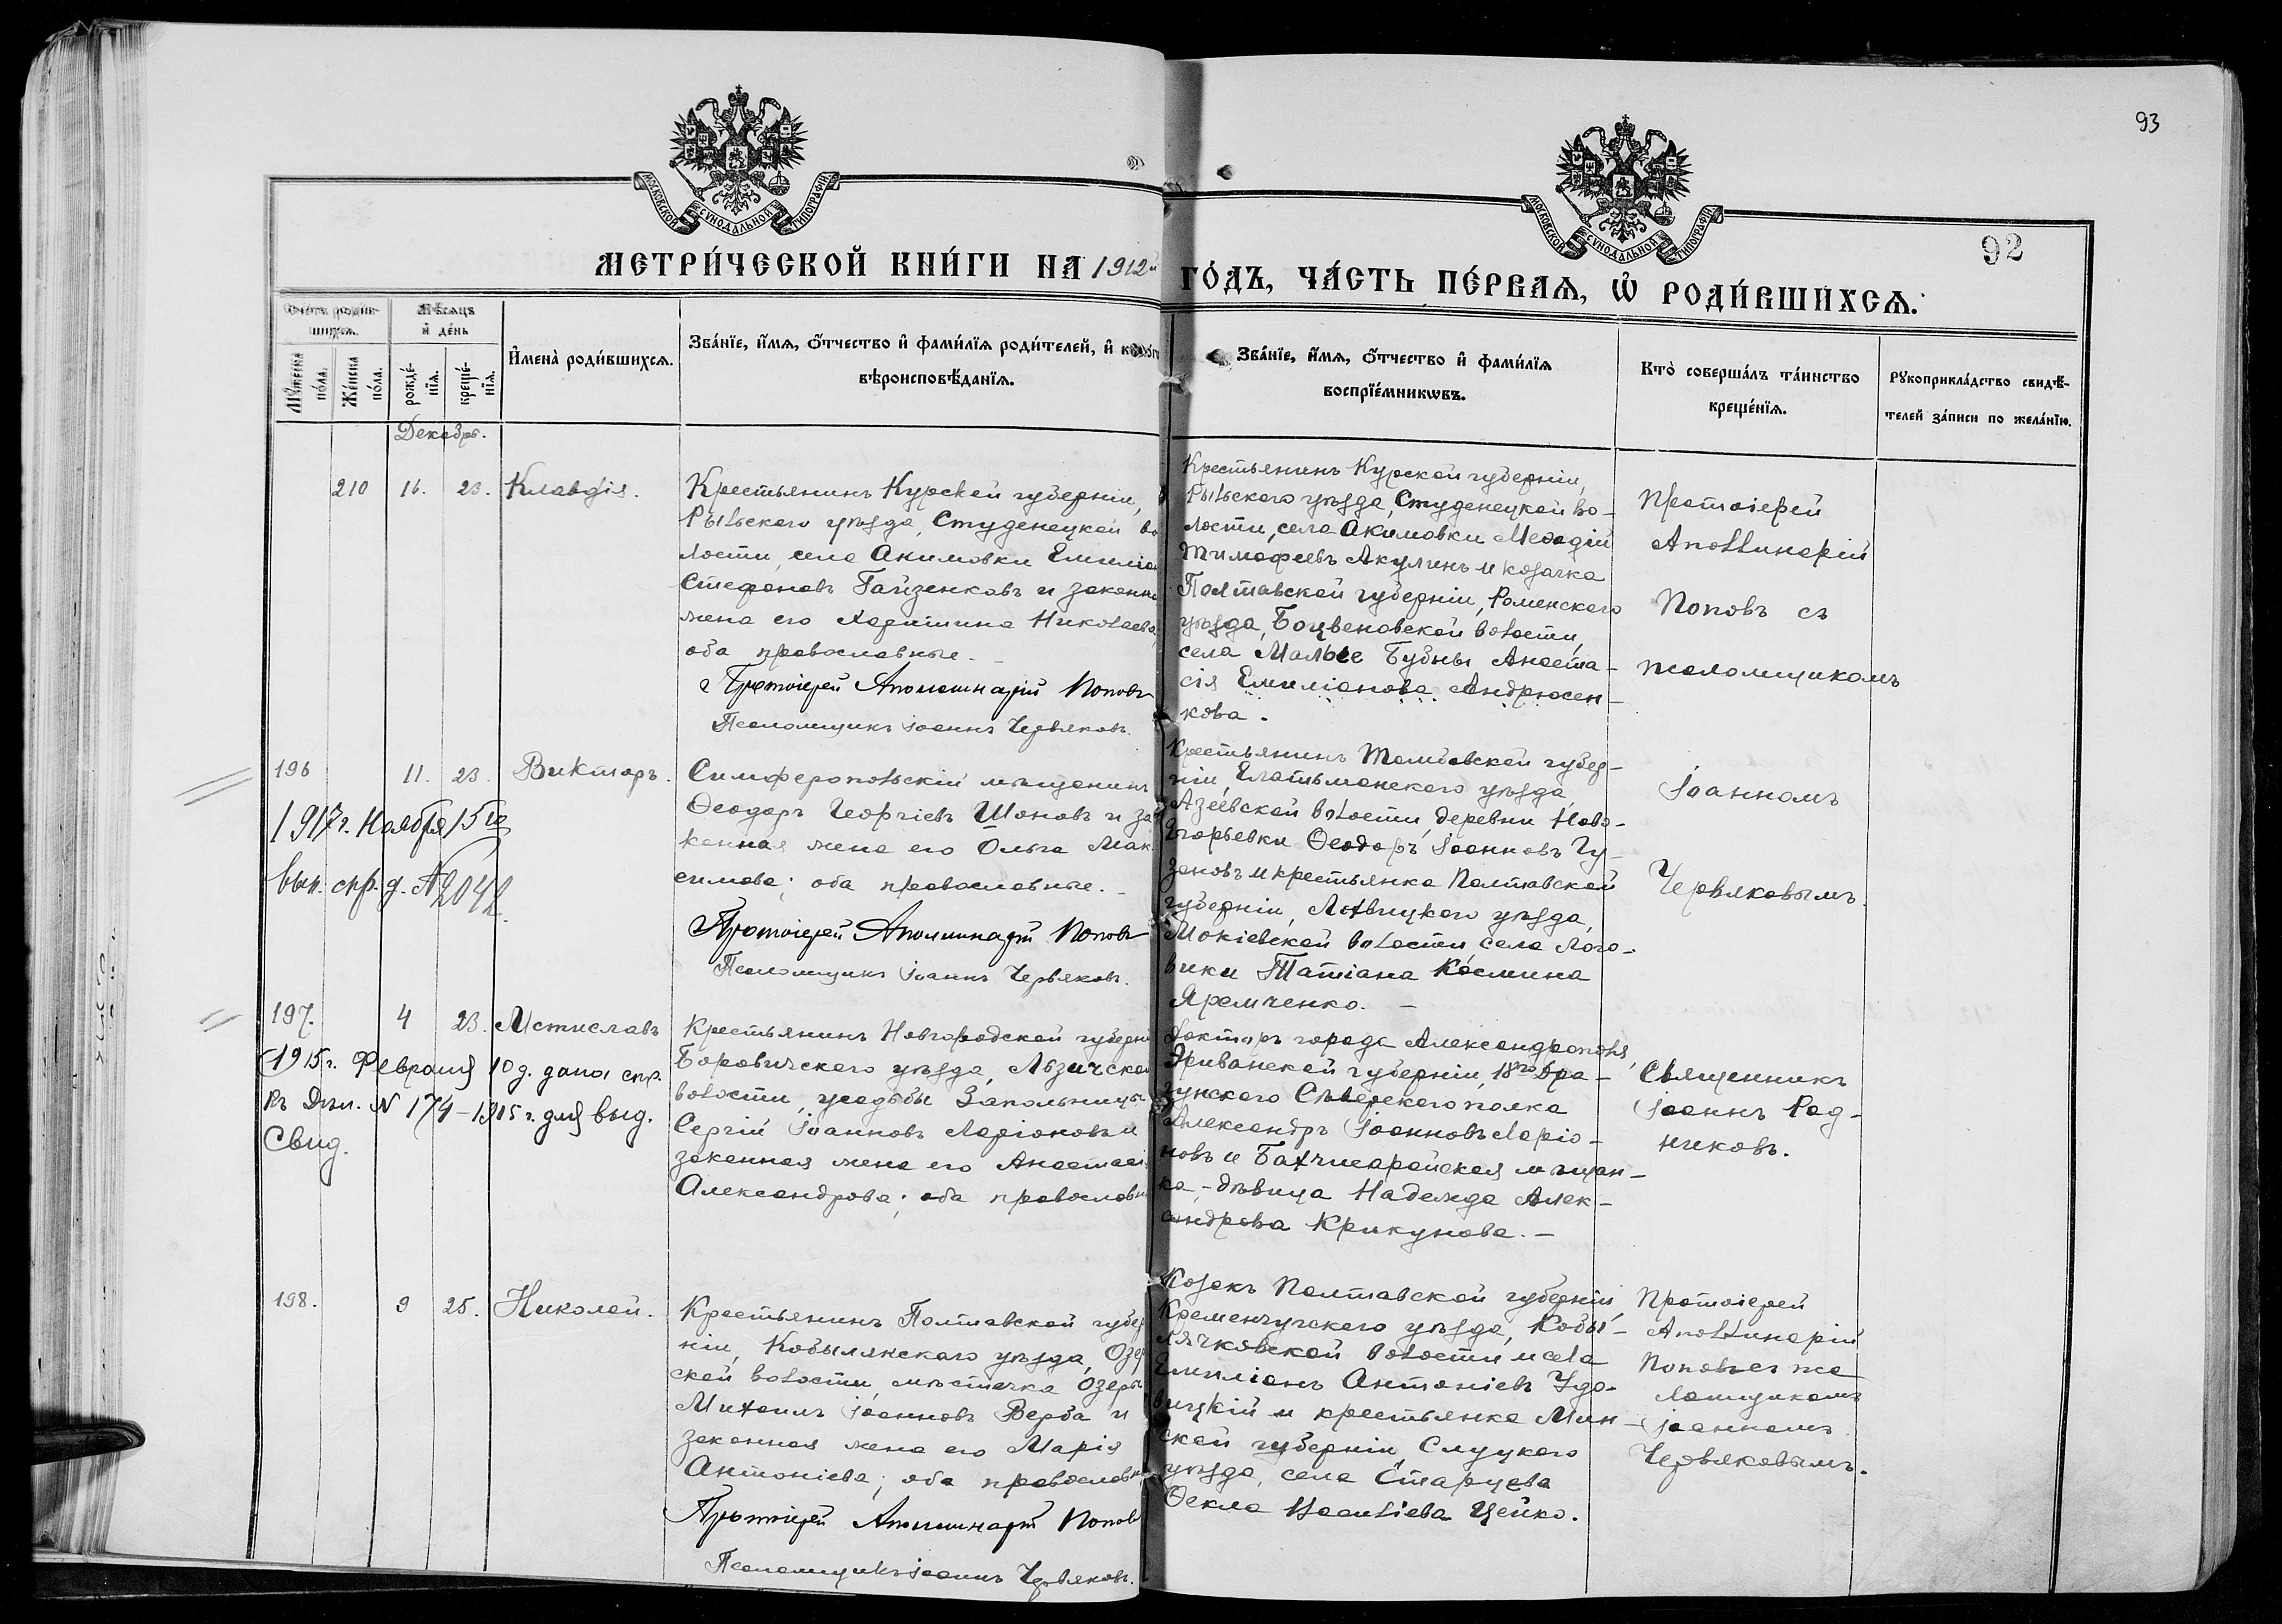 93
92
МОСКОВСКОЙ СѴНОДАЛЬНОЙ ТИПОГРАФІИ
МОСКОВСКОЙ СѴНОДАЛЬНОЙ ТИПОГРАФІИ
МЕТРИ́ЧЕСКОЙ КНИ́ГИ НА 1912й
ГО́ДЪ, ЧА́СТЬ ПЕ́РВАѦ, Ѡ҆ РОДИ́ВШИХСѦ.
Счетъ родив-
шихсѧ.
Мꙋжеска пола.
Же́нска по́ла.
Мѣсѧцъ
и҆ де́нь
рожде́-
нїѧ.
креще́-
нїѧ.
И҆мена̀ роди́вшихсѧ.
Зва́нїе, и҆́мѧ, ѻ҆́тчество и҆ фами́лїѧ роди́телей, и҆
вѣроисповѣ́данїѧ.
Зва́нїе, и҆́мѧ, ѻ҆́тчество и҆ фами́лїѧ
воспрїе́мникѡвъ.
Кто̀ соверша́лъ та́инство
креще́нїѧ.
Рꙋкоприкла́дство свидѣ́-
телей за́писи по жела́нїю.
Декабрь.
210 16. 23. Клавдія.
Крестьянинъ Курской губерніи,
Рыльскаго уѣзда, Студенецкой во
лости, села Акимовки Емиліан
Стефановъ Гайзенковъ и законна
жена его Харитина Николаева,
оба православные.
Протоіерей Аполлинарій Поповъ
Псаломщикъ Іоаннъ Червяковъ.
Крестьянинъ Курской губерніи,
Рыльскаго уѣзда, Студенецкой во-
лости, села Акимовки Меѳодій
Тимофеевъ Акулинъ и козачка
Полтавской губерніи, Роменскаго
уѣзда, Боцвеновской волости,
села Малые Бубны Анаста-
сія Емиліанова Андрюсен-
кова.
Протоіерей
Аполлинарій
Поповъ съ
псаломщикомъ
196 11. 23. Викторъ.
1917 г. Ноября 15 го
вып. спр. д. № 2042.
Симферопольскій мѣщанинъ
Ѳеодоръ Георгіевъ Шоновъ и за
конная жена его Ольга Мак
симова; оба православные.
Протоіерей Аполлинарій Поповъ
Псаломщикъ Іоаннъ Червяковъ.
Крестьянинъ Тамбовской губер-
ніи, Елатьмонскаго уѣзда,
Азеевской волости, деревни Ново-
Егорьевки Ѳеодоръ Іоанновъ Гу-
зановъ и крестьянка Полтавской
губерніи, Лохвицкаго уѣзда,
Мокіевской волости, села Лого-
вики Татіана Космина
Яремченко.
Іоанномъ
Червяковымъ.
197. 4 23. Мстиславъ
1915 г. Февраля 10 д. дана спр.
къ Дѣл. N 174-1915 г. для выд.
Свид.
Крестьянинъ Новгородской губерн
Боровичскаго уѣзда, Льзичской
волости, усадьбы Запольницы
Сергій Іоанновъ Ларіоновъ и
законная жена его Анастасі
Александрова; оба православн
Докторъ города Александрополя,
Эриванской губерніи, 18го Дра-
гунскаго Сѣверскаго полка
Александръ Іоанновъ Ларіо-
новъ и Бахчисарайская мѣщан-
ка, дѣвица Надежда Алек-
сандрова Крикунова.
Священникъ
Іоаннъ Род-
никовъ.
198. 9 25. Николай.
Крестьянинъ Полтавской губер
ніи, Кобылянскаго уѣзда, Озер
ской волости, мѣстечка Озеры
Михаилъ Іоанновъ Верба и
законная жена его Марія
Антоніева; оба православн
Протоіерей Аполлинарій Поповъ
Псаломщикъ Іоаннъ Червяковъ.
Козакъ Полтавской губерніи,
Кременчугскаго уѣзда, Кобы-
лячковской волости и села
Емиліанъ Антоніевъ Удо-
вицкій и крестьянка Мин-
ской губерніи, Слуцкаго
уѣзда, села Старцева
Ѳекла Васильева Цейко.
Протоіерей
Аполлинарій
Поповъ съ пса
ломщикомъ
Іоанномъ
Червяковымъ.